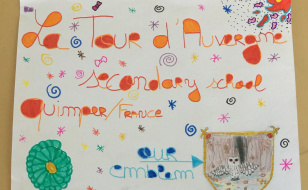 La Tour d'Auvergne
secondary school
Quimper/France
OUR
EMBLEM